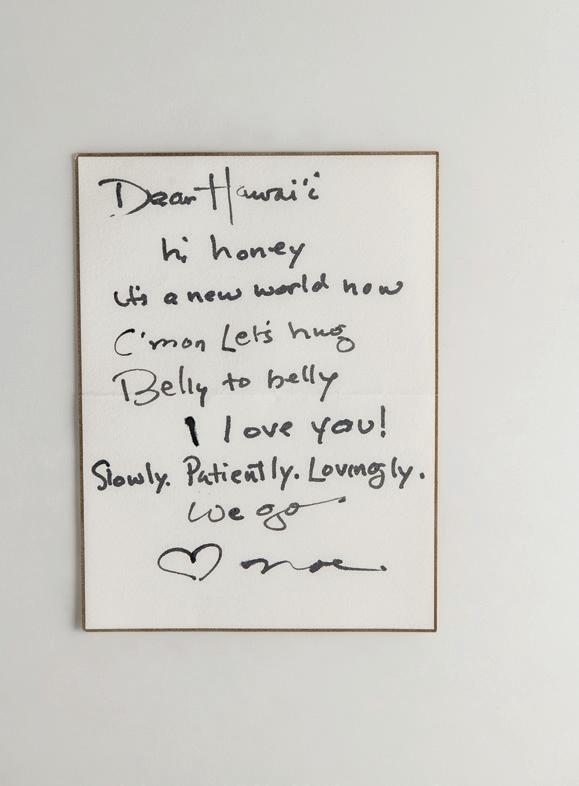 Dear Hawai'i
hi honey
it's a new world now
C'mon Let's hug
Belly to belly
I love you!
Slowly. Patiently. Lovingly.
we go
♡ noe.